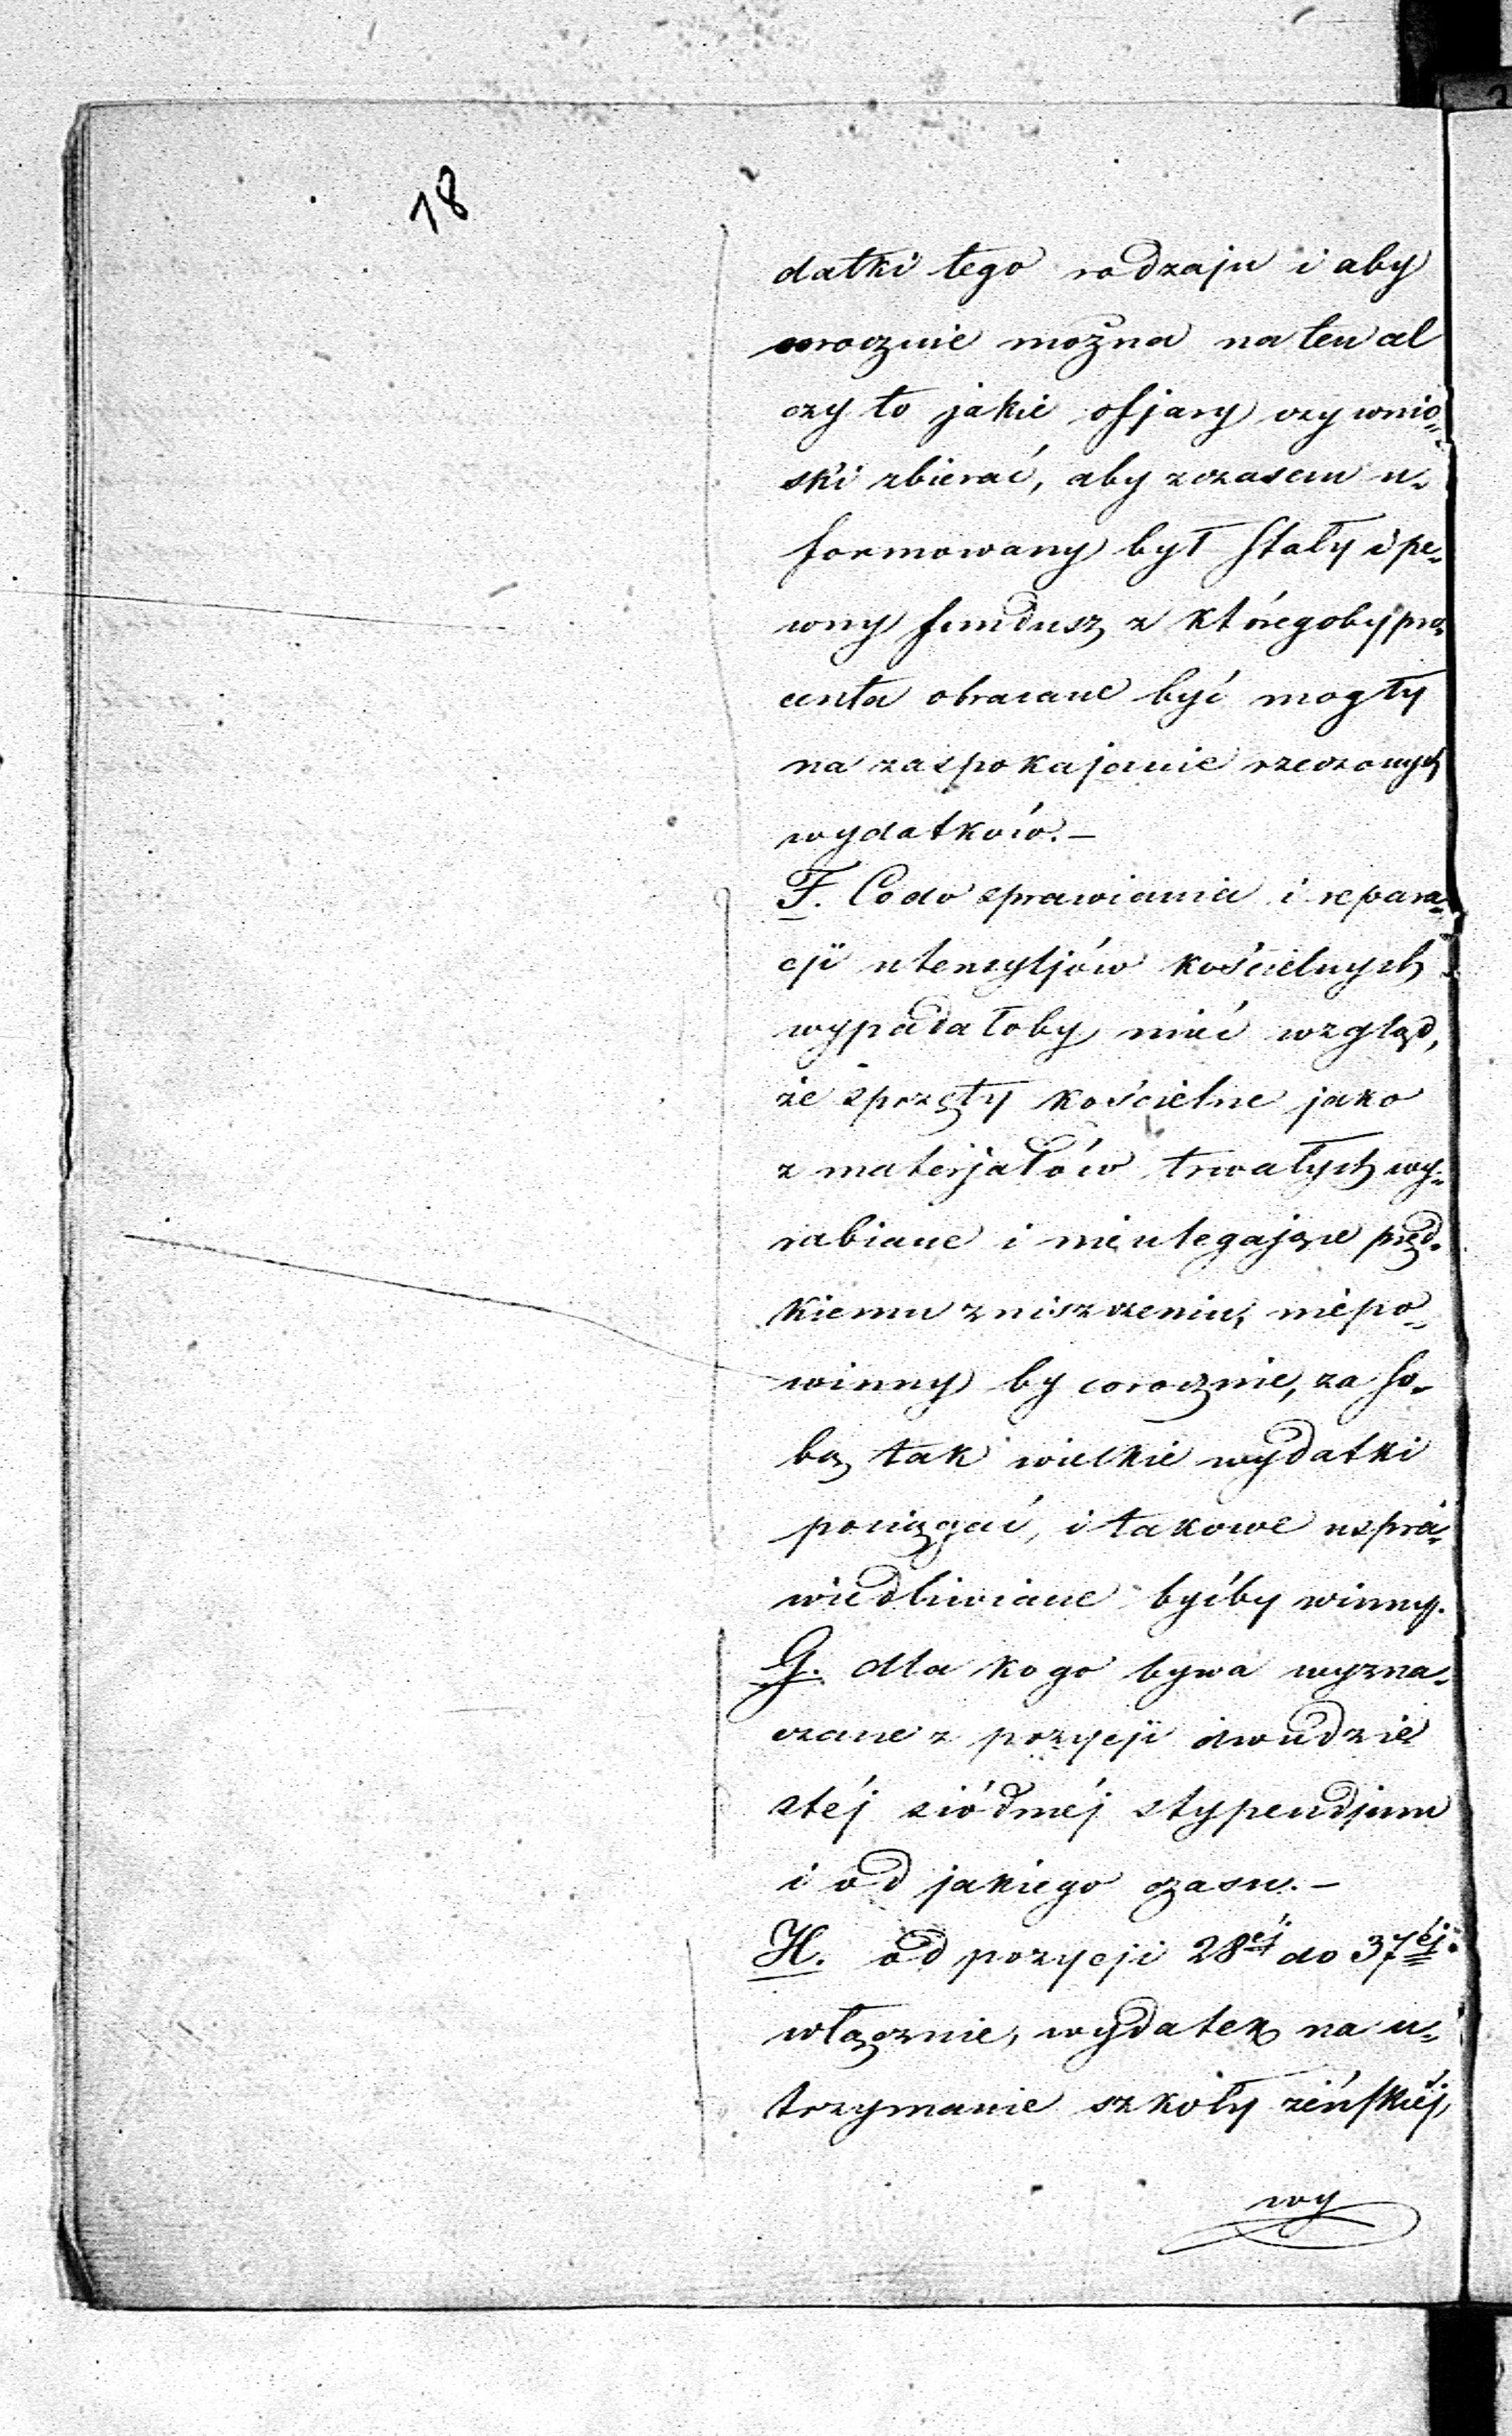 18
datki tego rodzaju i aby
corocznie można na ten cel
czy to jakie ofjary czy wnio-
ski zbierać, aby z czasem u-
formowany był stały i pe-
wny fundusz z któregoby pro-
centa obracane być mogły
na zaspokajanie rzeczonych
wydatków.—
F. Co do sprawiania i repara-
cji utensyljów kościelnych
wypadałoby mieć wzgląd,
że sprzęty kościelne jako
z materjałów trwałych wy-
rabiane i nieulegające pręd-
kiemu zniszczeniu, niepo-
winny by corocznie, za so-
bą tak wielkie wydatki
pociągać, i takowe uspra-
wiedliwiane byćby winny.
G. dla kogo bywa wyzna-
czane z pozycji dwudzie
stéj siódméj stypendjum
i od jakiego czasu.—
H. od pozycji 28éj do 37éj
włącznie, wydatek na u-
trzymanie szkoły żeńskiéj,
wy